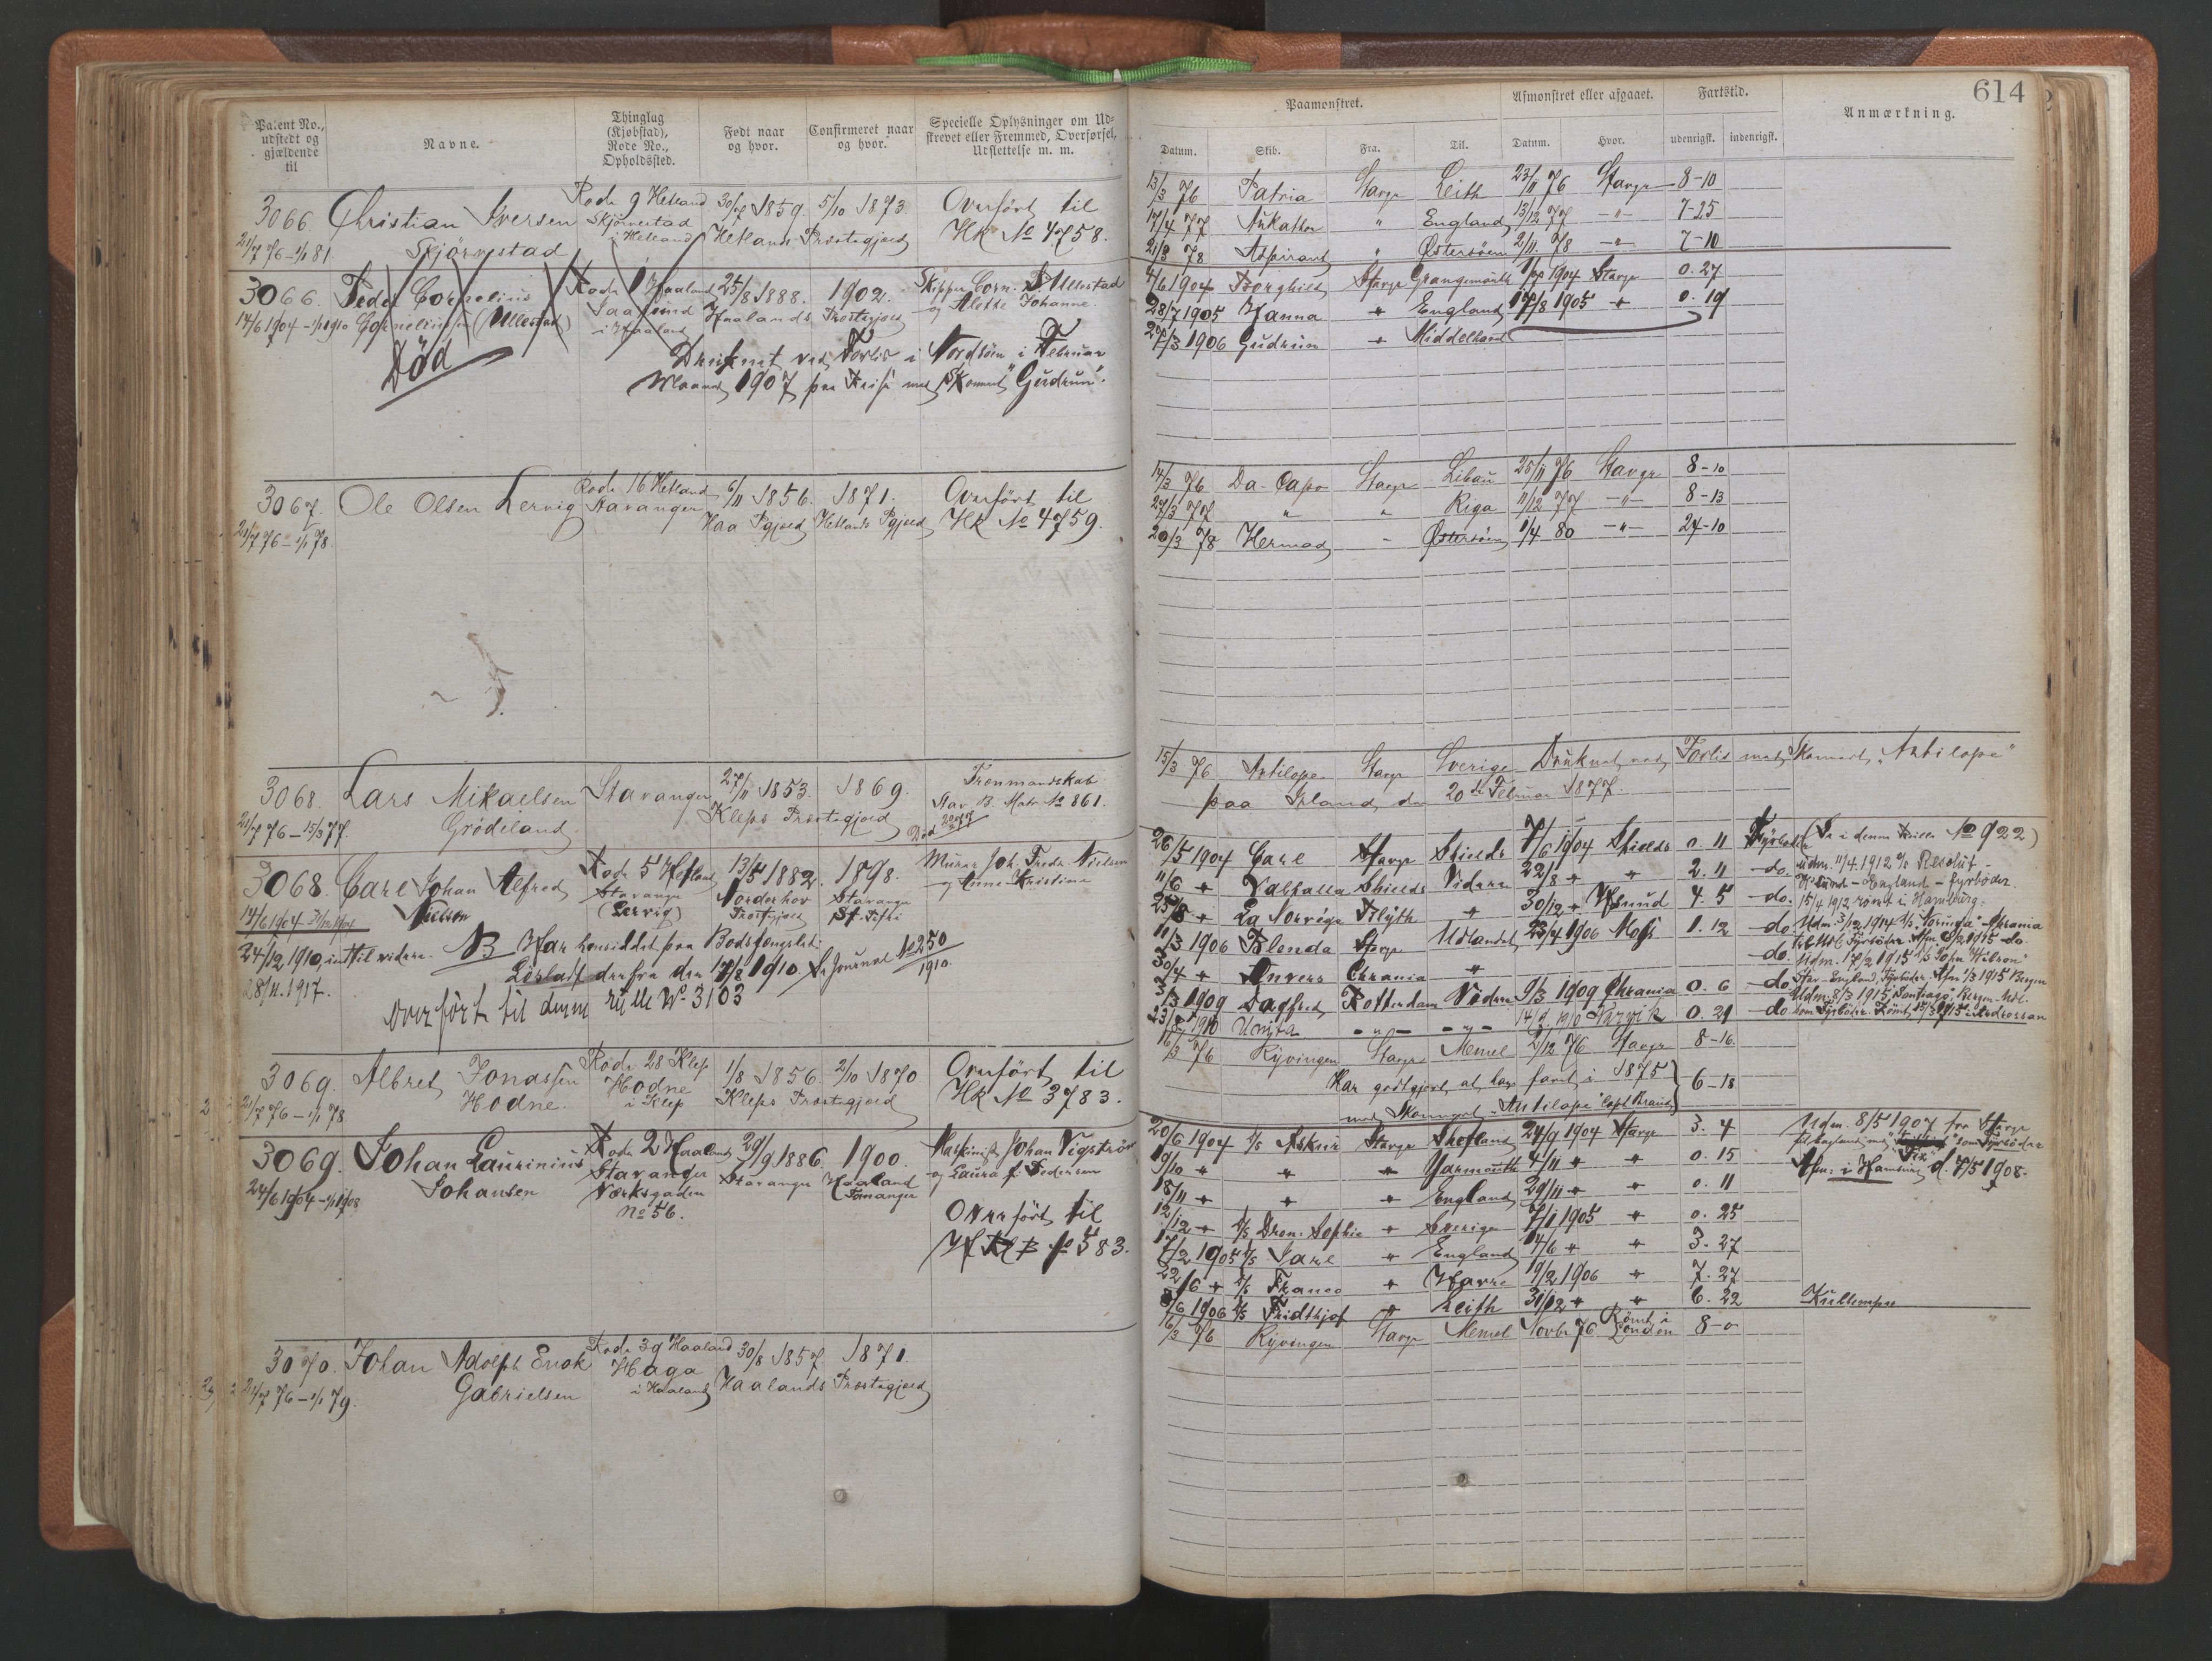 Patent No., udstedt og gjældende til
Navne.
Thinglag (Kjøbstad), Rode No., Opholdssted.
Født naar og hvor.
Confirmeret naar og hvor.
Specielle Oplysninger om Udskrevet eller Fremmed, Overførsel, Udslettelse m. m.
3066. Christian Iversen Rode 9 Hetland 30/7 1859. 5/10 1873. Overført til
21/7 76 – 1/1 81 Skjørvestad Skjørvestad i Hetland Hetlands Prostegjæld HR No 4758.
3066. Peder Cornelius Rode 1 Haaland 25/8 1888. 1902.
14/6 1904 – 1/1 1910 Corneliussen (Ullestad) i Haaland Haalands Prostegjeld og Alette Johanne
Død
Druknet ved Forlis i Nordsøen i Februar
Maaned 1907 paa Reise med Skonnert "Gudrun".
3067. Ole Olsen Lervig Rode 16 Hetland 6/11 1856. 1871. Overført til
21/7 76 – 1/1 78. Stavanger Haa Pgjæld Hetlands Pgjæld HR No 4759.
3068. Lars Mikaelsen Stavanger 27/11 1853. 1869.
21/7 76 – 15/3 77. Grödeland Kleps Prostegjæld Stav. B. Matr No 861.
Død
3068. Carl Johan Alfred Rode 5 Hetland 13/5 1882. 1898. Murer Joh. Fredr. Nielsen
14/6 1904 Nielsen Stavanger (Lervig) Norderhov Prostgjeld Stavanger St. Petri og Anne Kristine
24/12 1910, indtil videre. NB Har hensiddet paa Bodsfengslet
28/11. 1917. Lösladt derfra den 17/8 1910. Se Journal No 250/1910
Overført til denne rulle No 3103
3069. Albret Jonassen Rode 28 Klep 1/8 1856. 2/10 1870 Overført til
21/7 76 – 1/1 78 Hodne. Hodne i Klep Kleps Prostegjæld HR No 3783.
3069. Johan Laurinius Rode 2 Haaland 29/9 1886 1900. Maskinist Johan Vigström
24/6 1904 – 1/1 1908 Johansen Stavanger Stavanger Haaland og Laura f. Pedersen
Værksgaden No 56.
Overført til
No 583.
3070. Johan Adolph Enok Rode 39 Haaland 30/8 1857. 1871.
21/7 76 – 1/1 79. Gabrielsen Haga i Haaland Haalands Prostegjæld
614
Paamønstret.
Afmønstret eller afgaaet.
Fartstid.
Anmærkning.
Datum.
Skib.
Fra.
Til.
Datum.
Hvor.
udenrigsk.
indenrigsk.
13/3 76 Patria Stavgr Leith 23/11 76 Stavgr 8-10
17/4 77 " England 13/12 77 -"- 7-25
21/3 78 Aspirant " Østersøen 2/11 78 -"- 7-10
4/6 1904 Borghild Stavgr Grangemouth 1/7 1904 Stavgr 0. 27
28/7 1905 Hanna " England 17/8 1905 " 0. 19
27/3 1906 Gudrun " Middelhavet
14/3 76 Da-Capo Stavgr Libau 25/11 76 Stavgr 8-10
29/3 77 " " Riga 11/12 77 -"- 8-13
20/3 78 Hermod " Østersøen 1/4 80 -"- 24-10
15/3 76 Antilope Stavgr Sverige Druknet ved Forlis med Skonnert "Antilope"
paa Irland den 20de Februar 1877.
26/5 1904 Carl Stavgr Shields 7/6 1904 Shields 0. 11 Fyrböder (Se i denne Rulle No 922)
11/6 " Valhalla Shields Videre 22/8 " " 2. 11 do. udm. 11/4. 1912 Resolut –
25/8 " La Norvége Blyth " 30/12 " 4. 5 do. England – fyrböder.
15/4 1912 römt i Hamburg.
11/3 1906 Blenda Stavgr Udlandet 23/4 1906 Moss 1. 12 do Udm. 3/12 1914 – Chrania
30/4 " Anvers Chrania " do.
3/3 1909 Dagfred Rotterdam Videre 9/3 1909 Chrania 0. 6 do
23/8 1910 Unita -"- -"- 0. 21 do.
16/3 76 Ryvingen Stavgr Memel 2/12 76 Stavgr 8-16
Har godtgjort, at have faret i 1875
med Skonnert "Antilope" 6-18
20/6 1904 D/S Askur Stavgr Shetland 24/9 1904 Stavgr 3. 4 Udm. 8/5 1907 fra Stavgr
19/10 " " " Yarmouth 4/11 " " 0. 15 Afm: i Hamburg d. 7/5 1908.
18/11 " " " England 29/11 " " 0. 11
12/12 " D/S Dron. Sophie " Sverige 7/1 1905 " 0. 25
17/2 1905 D/S Jarl " England 14/6 " " 3. 27
22/6 " D/S Franco " Havre 19/2 1906 " 7. 27
9/6 1906 D/S Fridthjof " Leith 31/12 " " 6. 22 Kullemper
16/3 76 Ryvingen Stavgr Memel Novbr 76 Römt i London 8-0